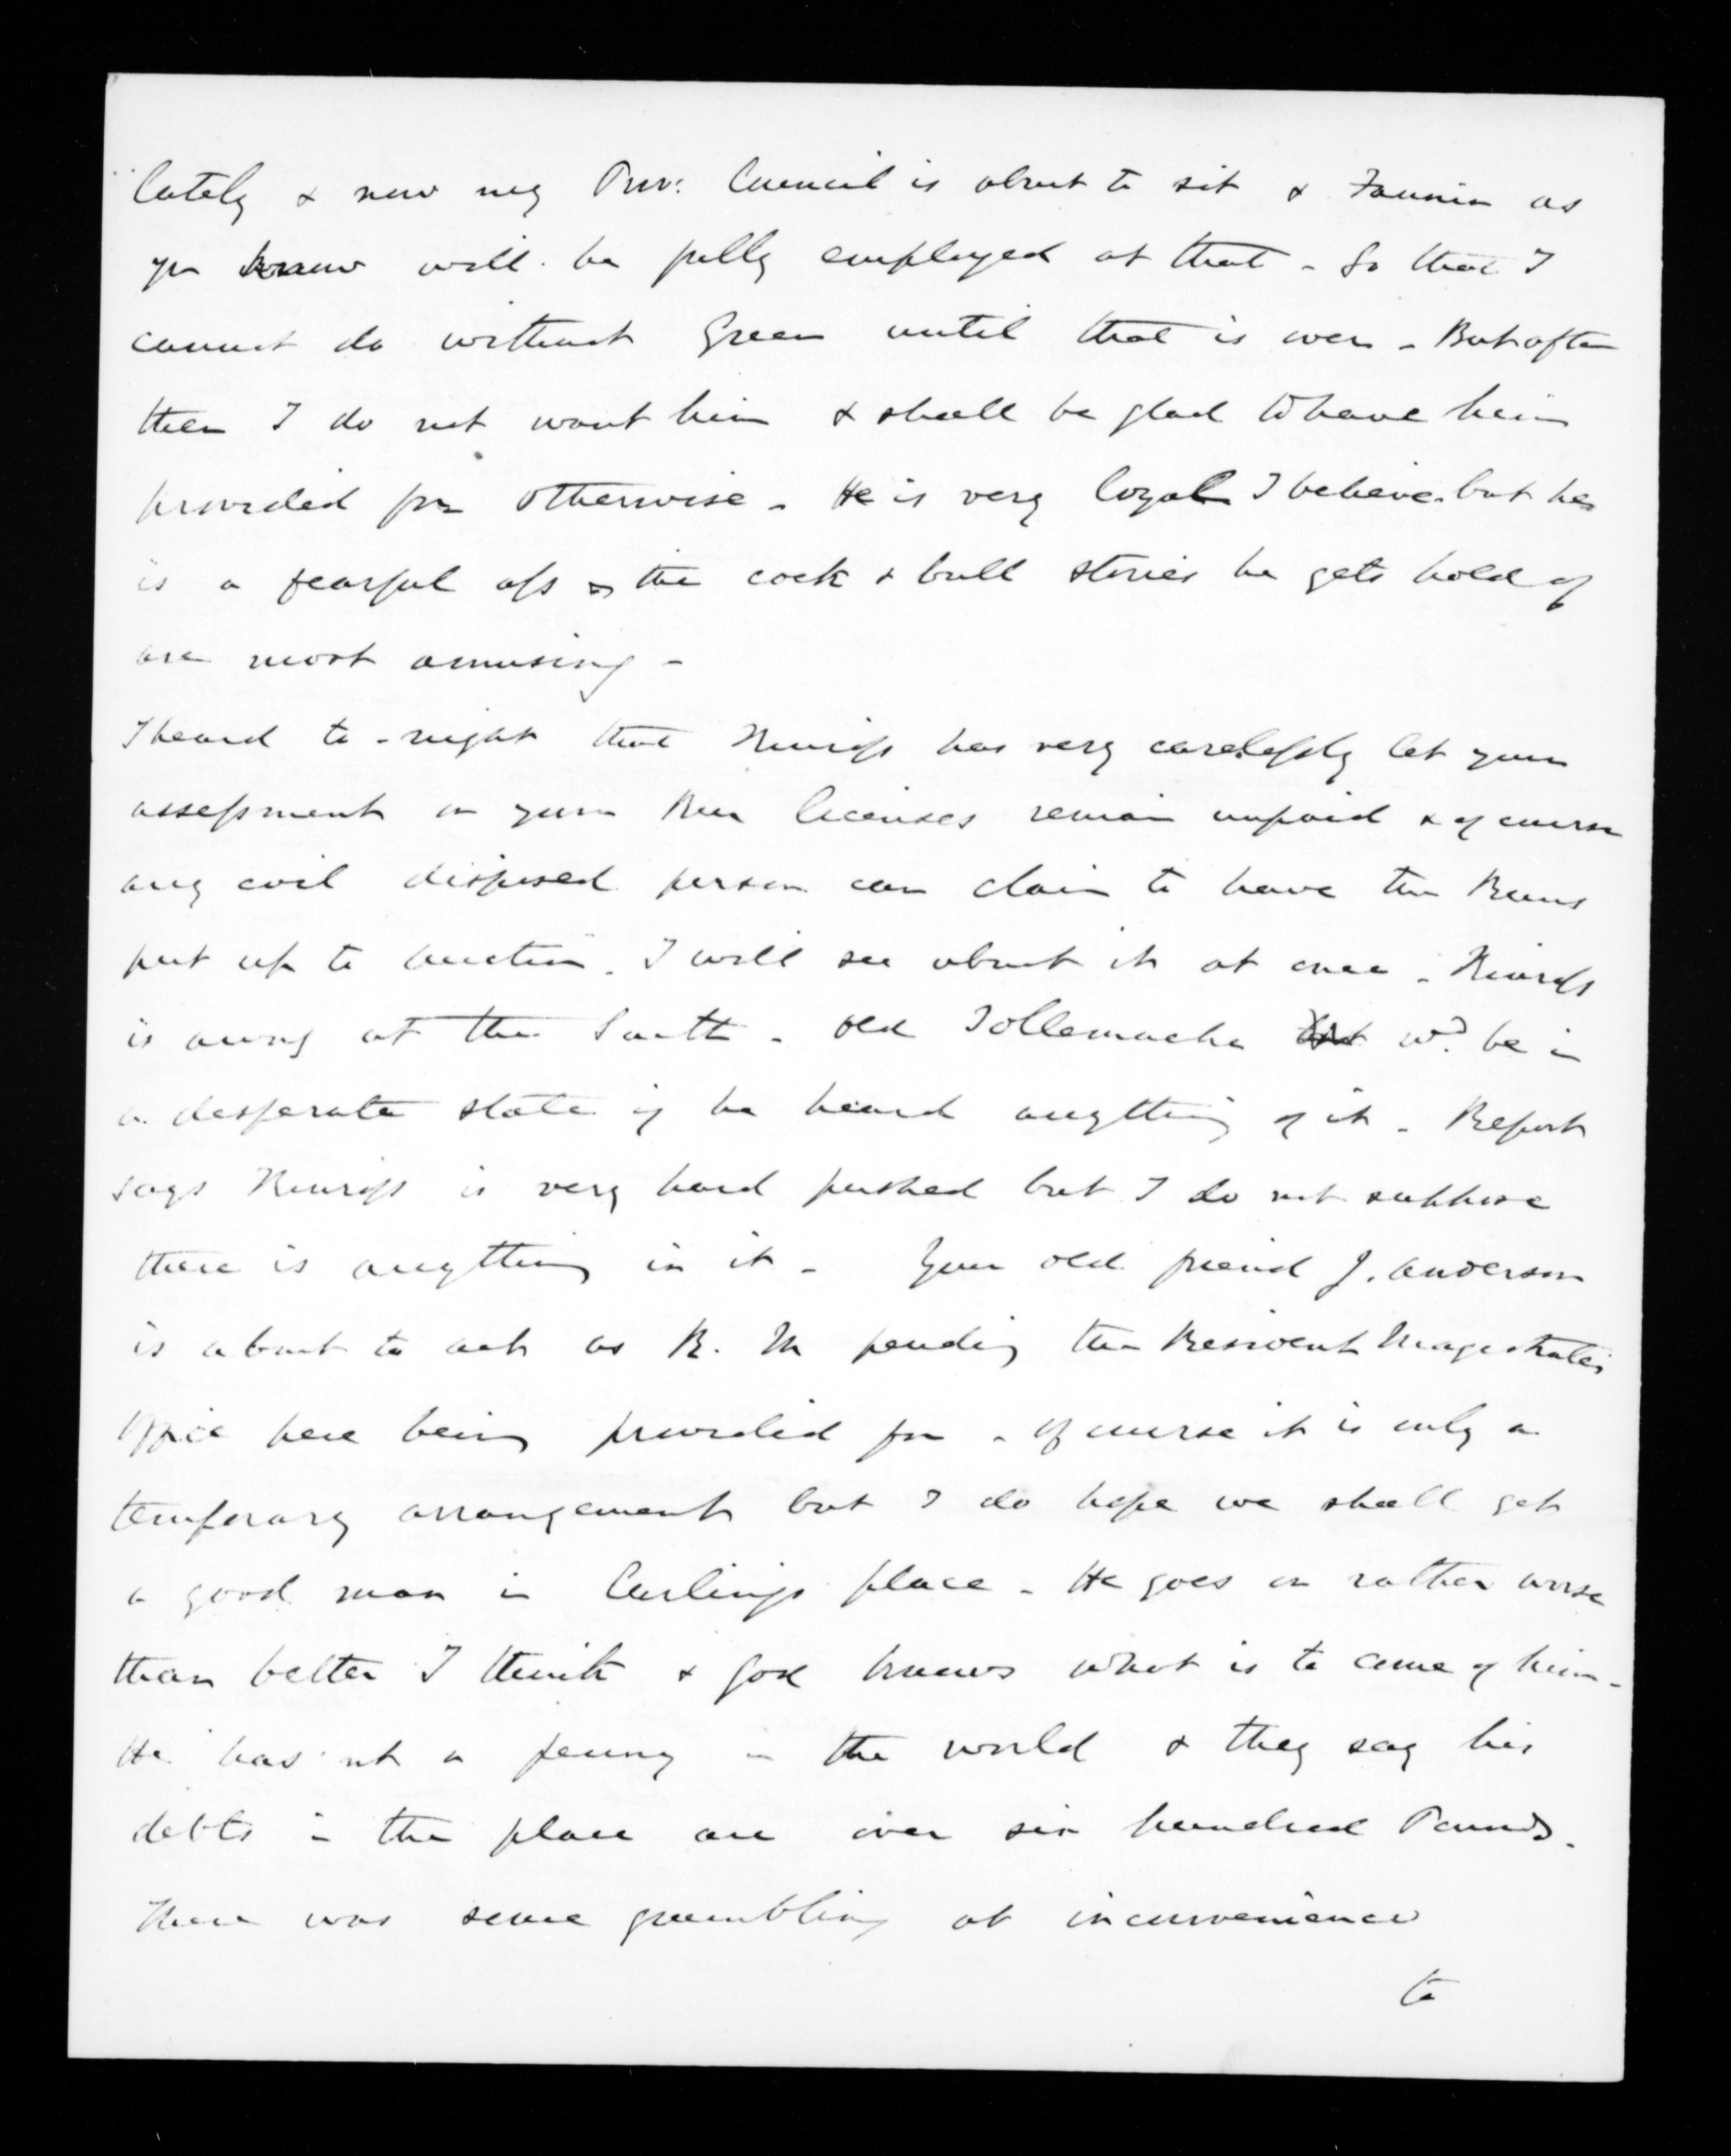 lately & now my Prov: Council is about to sit & Fannin as
you know will be fully employed at that - So that I
cannot do without Green until that is over - But after
then I do not want him & shall be glad to have him
provided for otherwise - He is very loyal I believe but he
is a fearful ass & the cock & bull stories he gets hold of
are most amusing -
I heard to-night that has very carelessly let your
assessment on your Run licenses remain unpaid & of course
any evil disposed person can claim to have the Runs
put up to auction. I will see about it at once -
is away at the South - Old Tollemache wd. be in
a desperate state if he heard anything of it - Report
says is very hard pushed but I do not suppose
there is anything in it - Your old friend J. Anderson
is about to act as R. M pending the Resident Magistrates
Office here being provided for - Of course it is only a
temporary arrangement but I do hope we shall get
a good man in Curlings place - He goes on rather worse
than better I think & God knows what is to come of him -
He has not a penny in the world & they say his
debts in the place are over six hundred Pounds.
There was some grumbling at inconvenience
to